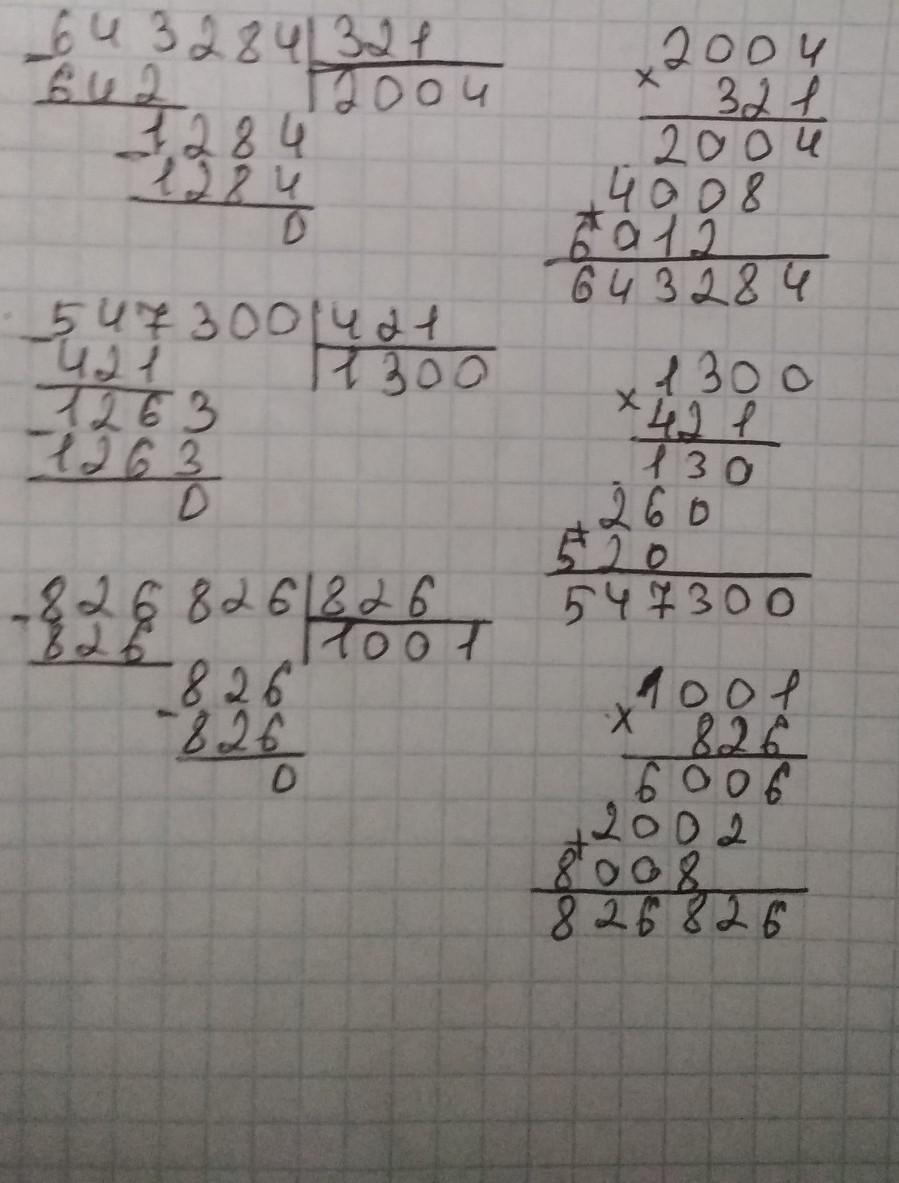 -643284|321
642 2004
-1284
1284
0
×2004
321
2004
+4008
6012
643284
-547300|421
421 1300
-1263
1263
0
×1300
421
130
+260
520
547300
-826826|826
826 1001
-826
826
0
×1001
826
6006
+2002
8008
826826